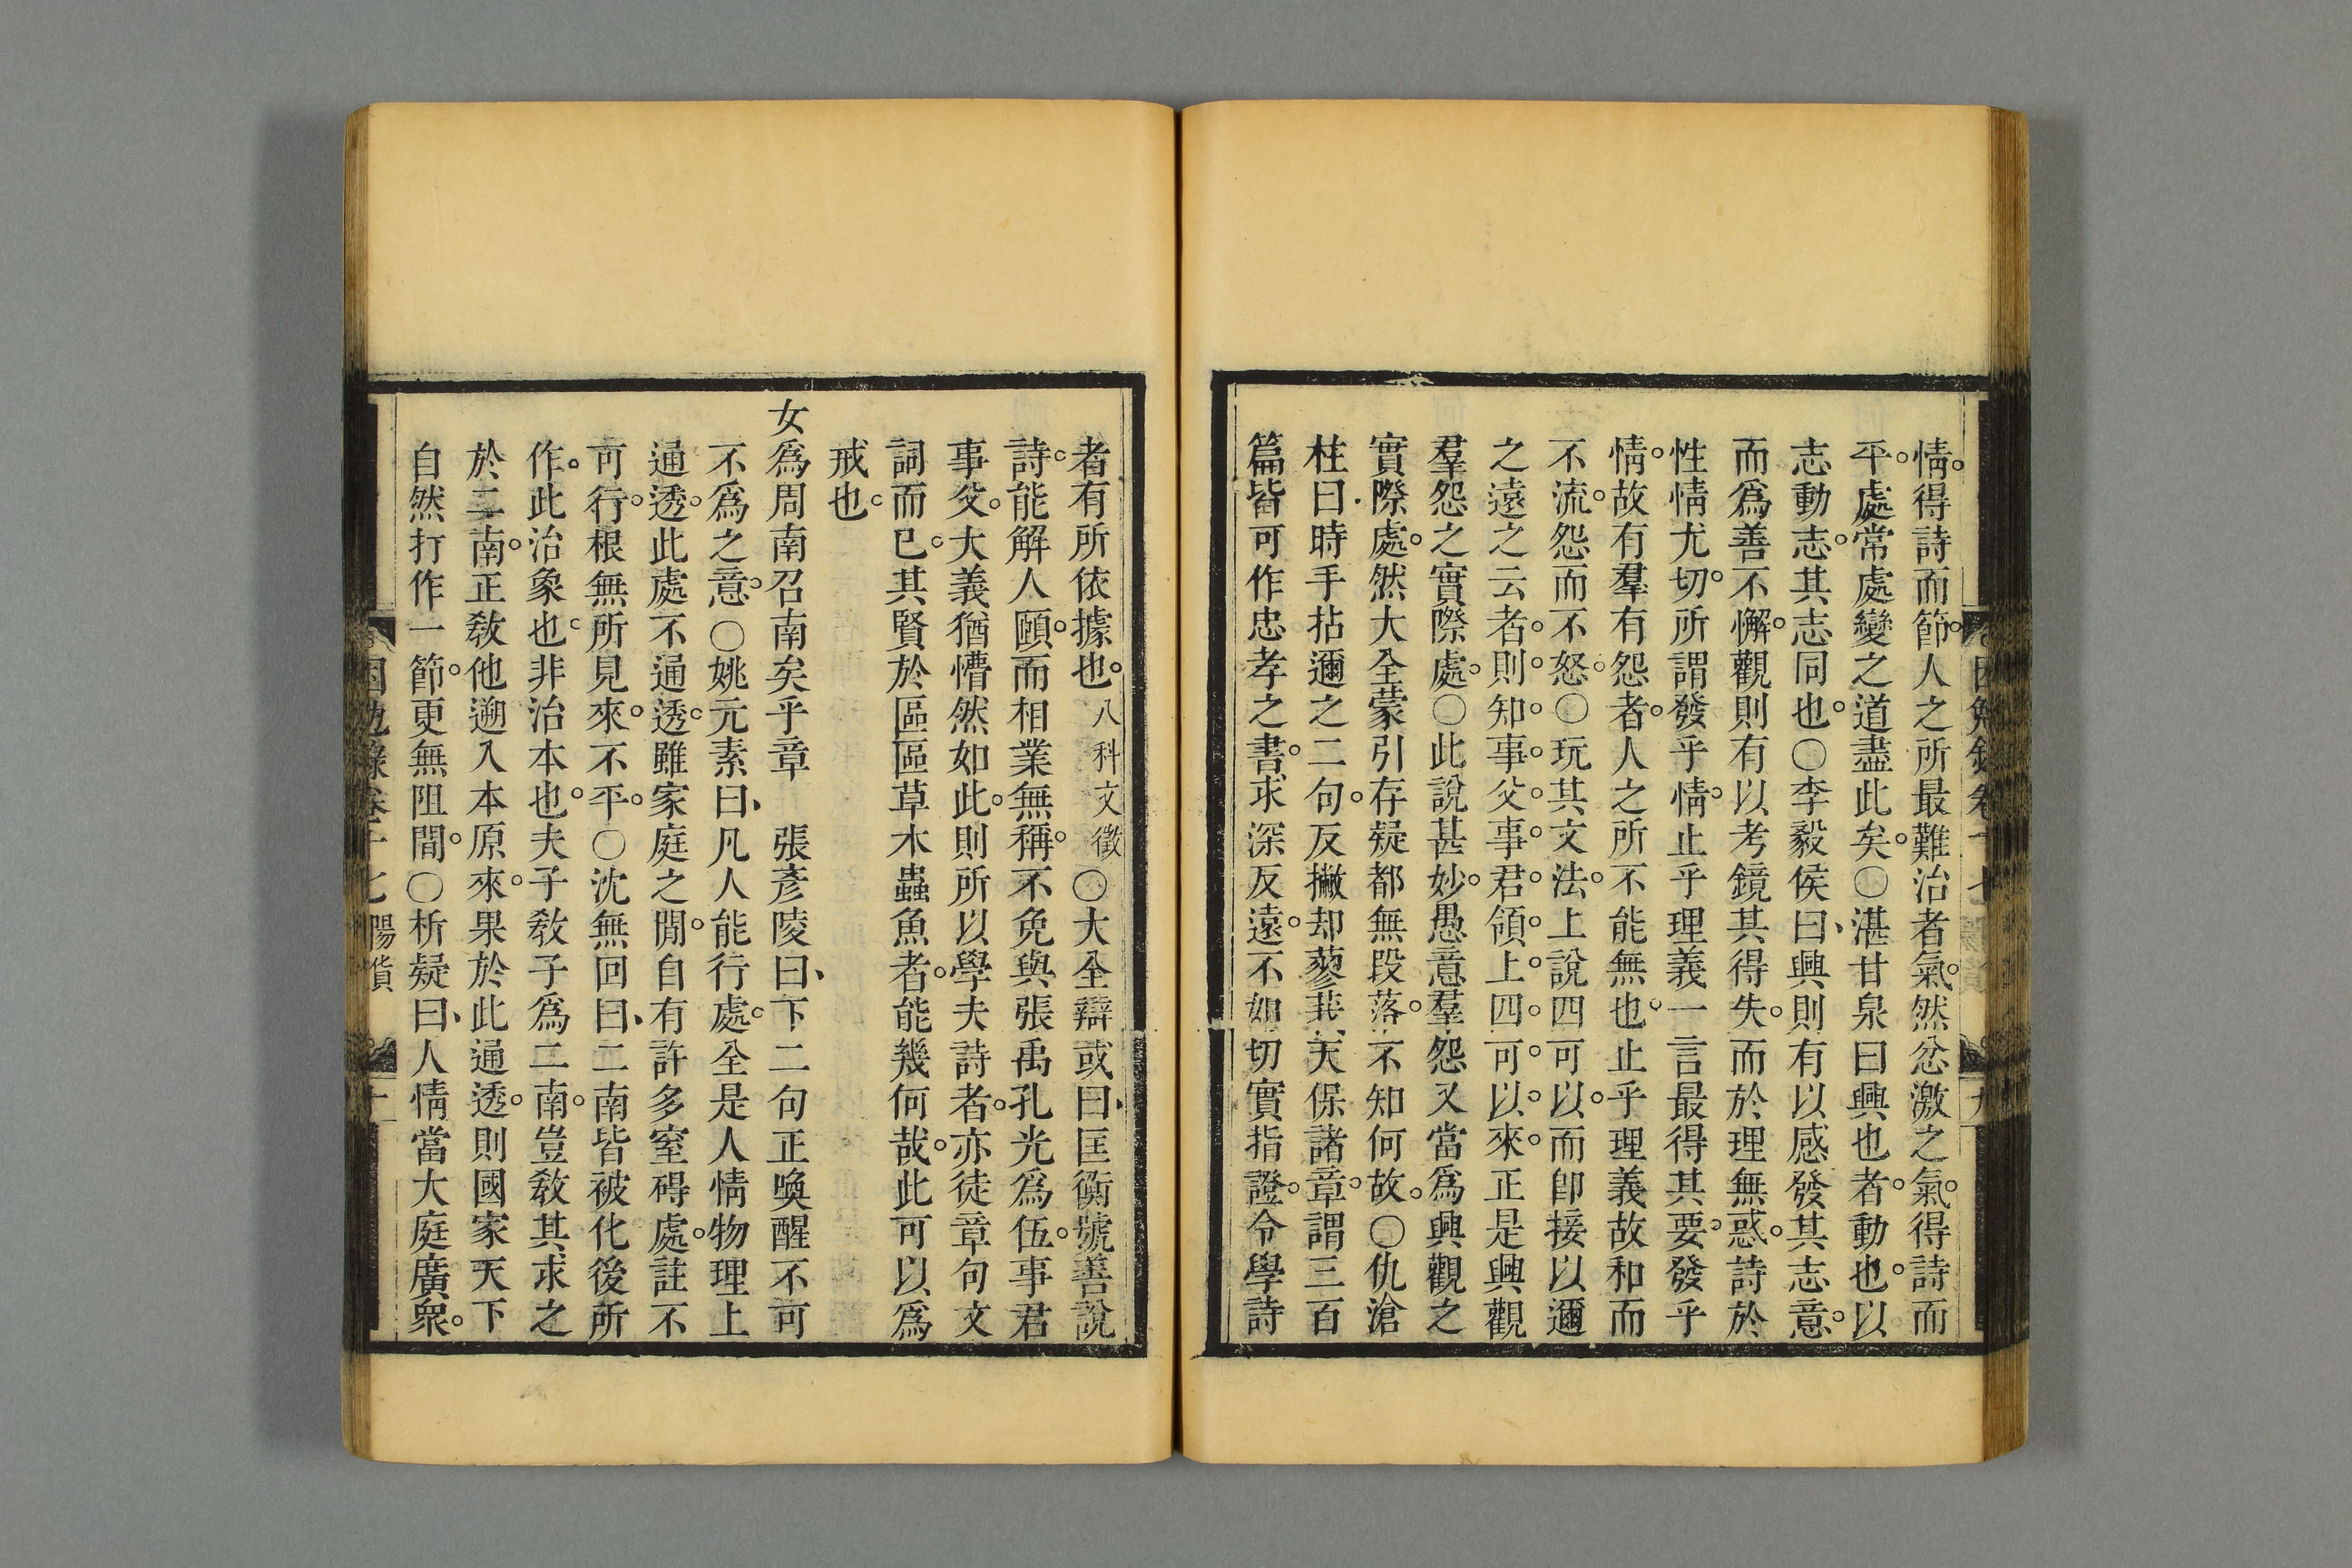 情得詩而節人之所最難治者氣然忿激之氣得詩而
平處常處變之道盡此矣〇湛甘泉曰興也者動也以
志動志其志同也〇李毅侯曰興則有以感發其志意
而爲善不懈觀則有以考鏡其得失而於理無惑詩於
性情尤切所謂發乎情止乎理義一言最得其要發乎
情故有羣有怨者人之所不能無也止乎理義故和而
不流怨而不怒〇玩其文法上說四可以而卽接以邇
之遠之云者則知事父事君領上四可以來正是興觀
羣怨之實際處〇此說甚妙愚意羣怨又當爲興觀之
實際處然大全蒙引存疑都無段落不知何故〇仇滄
柱曰時手拈邇之二句反撇却蓼莪天保諸章謂三百
篇皆可作忠孝之書求深反遠不如切實指證令學詩
者有所依據也八科文徵〇大全辯或曰匡衡號善說
詩能解人頤而相業無稱不免與張禹孔光爲伍事君
事父大義猶懵然如此則所以學夫詩者亦徒章句文
詞而已其賢於區區草木蟲魚者能幾何哉此可以爲
戒也
女爲周南召南矣乎章 張彥陵曰下二句正喚醒不可
不爲之意〇姚元素曰凡人能行處全是人情物理上
通透此處不通透雖家庭之閒自有許多窒碍處註不
可行根無所見來不平〇沈無回曰二南皆被化後所
作此治象也非治本也夫子敎子爲二南豈敎其求之
於二南正敎他遡入本原來果於此通透則國家天下
自然打作一節更無阻間〇析疑曰人情當大庭廣衆
困勉錄卷十七 陽貨 十